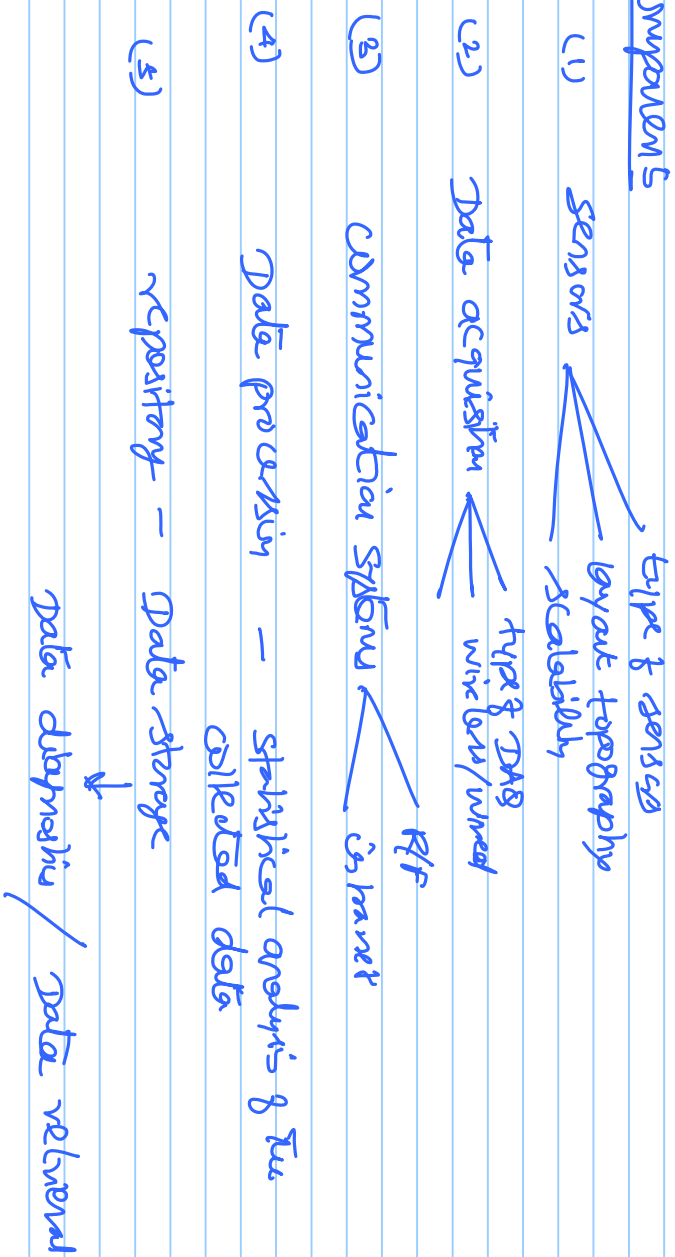 omponents
(1) sensors
type of sensors
layout topography
scalability
(2) Data acquisition
type of DAQ
wireless/wired
(3) communication systems
R/F
internet
(4) Data processing – statistical analysis of the
collected data
(5) repository – Data storage
↓
Data diagnostics / Data retrieval